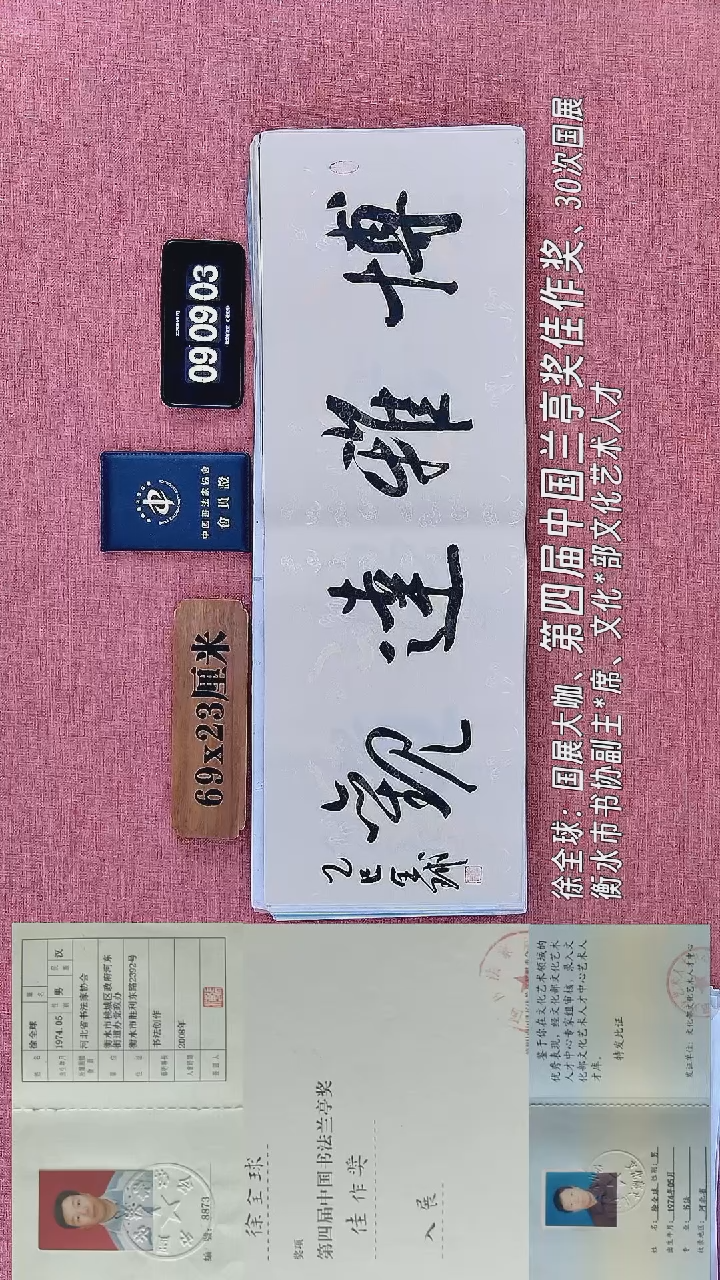 博雅達觀
乙巳全球
09 09 03
中国书法家协会
會員證
69x23厘米
徐全球：国展大咖、第四届中国兰亭奖佳作奖、30次国展
衡水市书协副主*席、文化*部文化艺术人才
徐全球
1974.05
男
汉
河北省书法家协会
衡水市桃城区政府河东
街道办党政办
衡水市胜利东路2392号
书法创作
2008年
编号：8873
徐全球
奖项
第四届中国书法兰亭奖
佳作奖
入展
鉴于你在文化艺术领域的
优秀表现，经文化部文化艺术
人才中心专家组审核，录入文
化部文化艺术人才中心艺术人
才库。
特发此证
发证单位：文化部文化艺术人才中心
姓名：徐全球 性别：男
出生年月：1974年05月
专业：书法